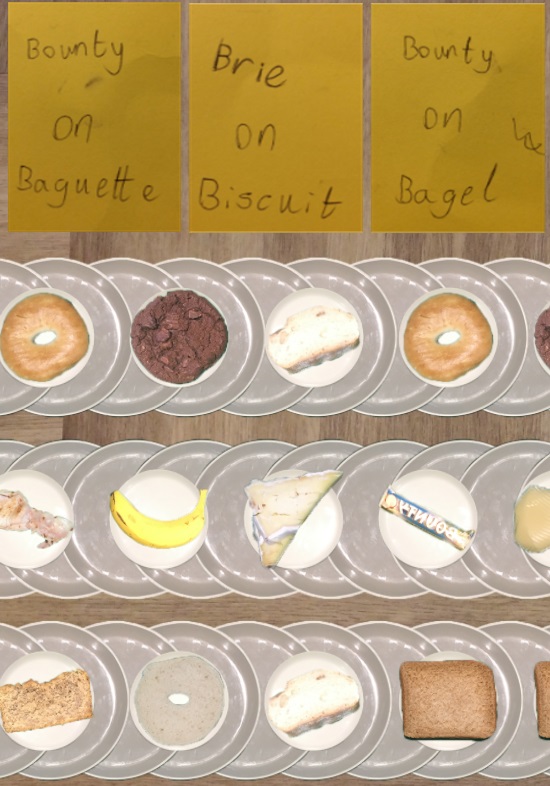 Bounty
on
Baguette
Brie
on
Biscuit
Bounty
on
Bagel
BOUNTY